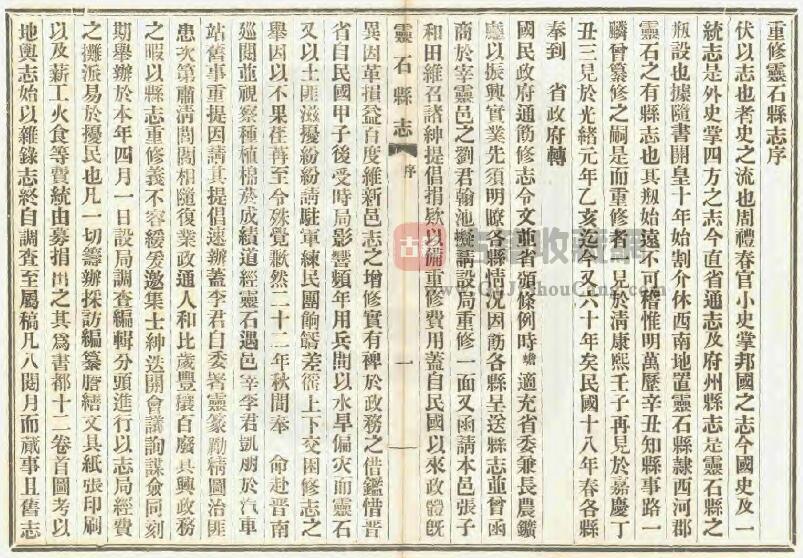 重修靈石縣志序
伏以志也者史之流也周禮春官小史掌邦國之志今國史及一
統志是外史掌四方之志今直省通志及府州縣志是靈石縣之
瓶設也據隨書開皇十年始割介休西南地置靈石縣隸西河郡
靈石之有縣志也其剏始遠不可稽惟明萬歷辛丑知縣事路一
麟曾纂修之嗣是而重修者一見於清康熙壬子再見於嘉慶丁
丑三見於光緒元年乙亥迄今又六十年矣民國十八年春各縣
奉到 省政府轉
國民政府通飭修志令文並省頒條例時 適充省委兼長農鑛
廳以振興實業先須明瞭各縣情況因飭各縣呈送縣志並曾函
商於宰靈邑之劉君翰池 請設局重修一面又函請本邑張子
和田維召諸紳提倡捐欵以備重修費用蓋自民國以來政體旣
靈石縣志 序 一
異因革損益百度維新邑志之增修實有裨於政務之借鑑惜晉
省自民國甲子後受時局影響頻年用兵間以水旱偏灾而靈石
又以土匪滋擾紛紛請駐軍練民團餉 差徭上下交困修志之
舉因以不果荏苒至今殊覺歉然二十二年秋間奉 命赴晉南
廵閱並視察種植棉菸成績道經靈石遇邑宰李君凱朋於汽車
站舊事重提因請其提倡速辦蓋李君自委署靈篆勵精圖治匪
患次第肅清閭閻相隨復業政通人和比歲豐穰百廢具興政務
之暇以縣志重修義不容緩爰邀集士紳迭開會議詢謀僉同刻
期舉辦於本年四月一日設局調查編輯分頭進行以志局經費
之攤派易於擾民也凡一切籌辦採訪編纂謄繕文具紙張印刷
以及薪工火食等費統由募捐出之其為書都十二卷首圖考以
地輿志始以雜錄志終自調查至屬稿凡八閱月而蕆事且舊志